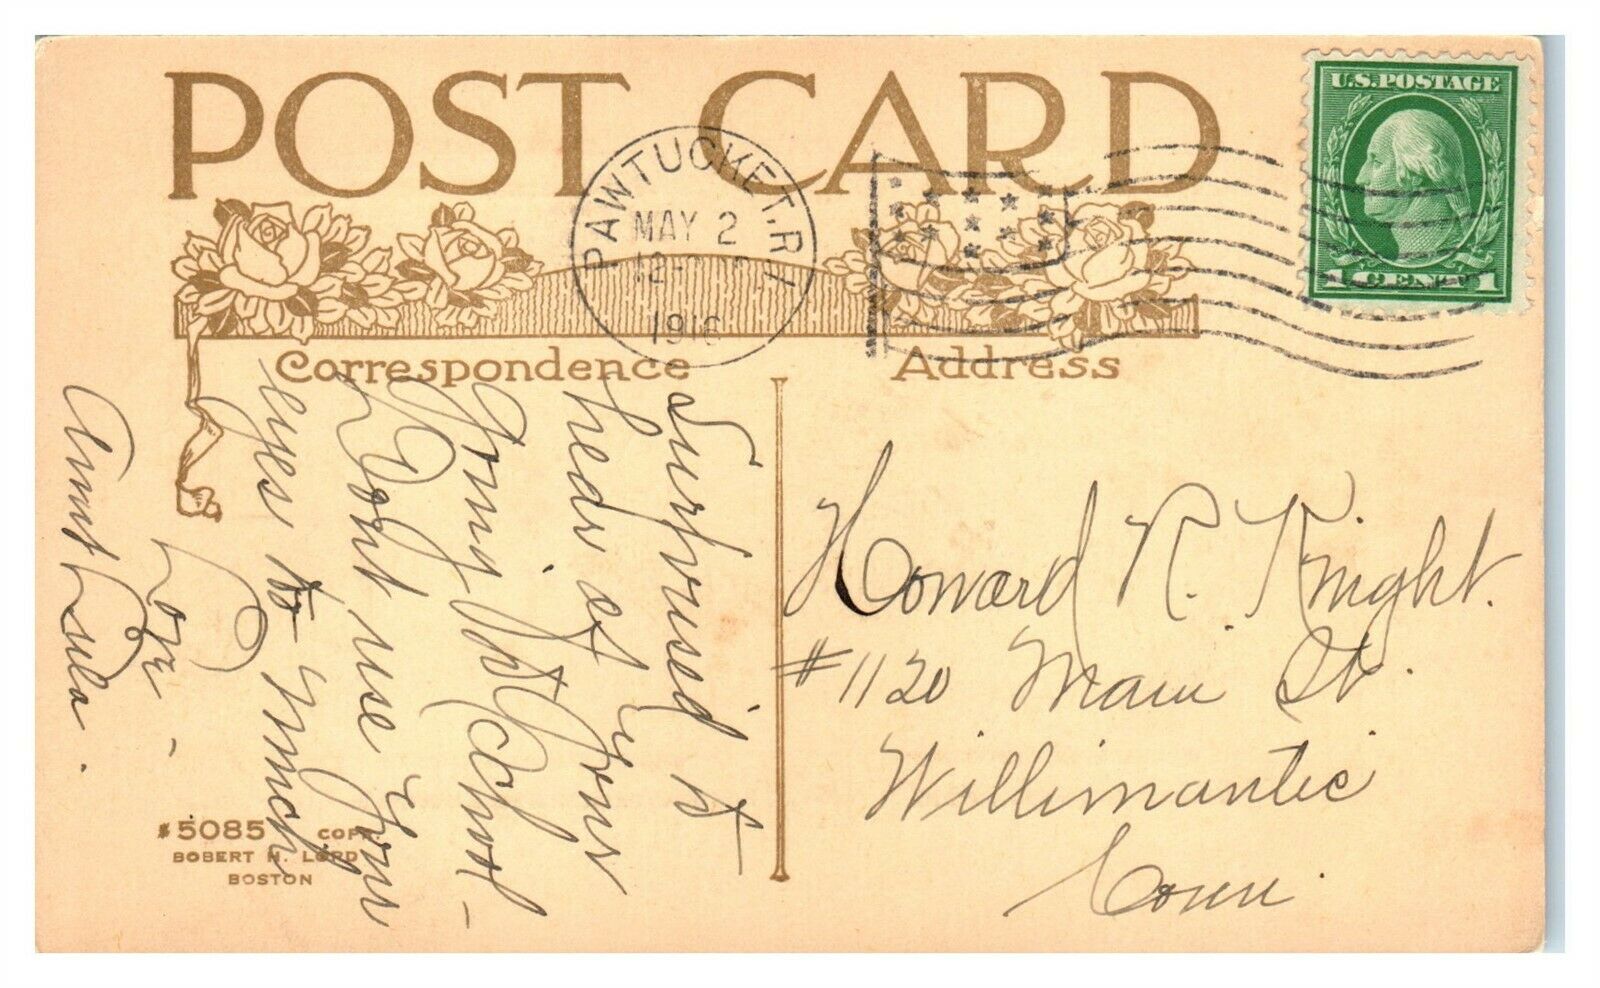 POST CARD
U.S. POSTAGE
1 CENT 1
PAWTUCKET. R.I.
MAY 2
12-
1916
Correspondence
Address
Surprised to
hear of your
going to School
Don't use your
eyes to much
Love -
Aunt Lula.
Howard R. Knight.
#1120 Main St.
Willimantic
Conn.
5085 COPR.
ROBERT H. LORD
BOSTON